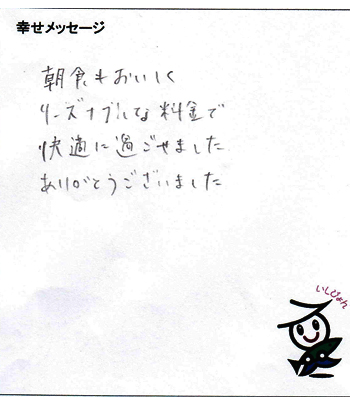 幸せメッセージ
朝食もおいしく
リーズナブルな料金で
快適に過ごせました
ありがとうございました
いしぴょん